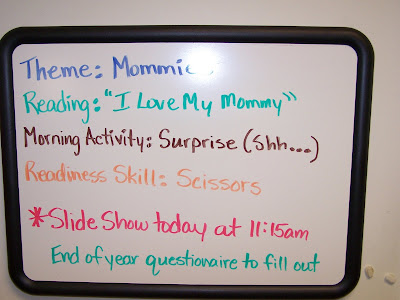 Theme: Mommies
Reading: "I Love My Mommy"
Morning Activity: Surprise (Shh...)
Readiness Skill: Scissors
*Slide Show today at 11:15am
End of year questionaire to fill out